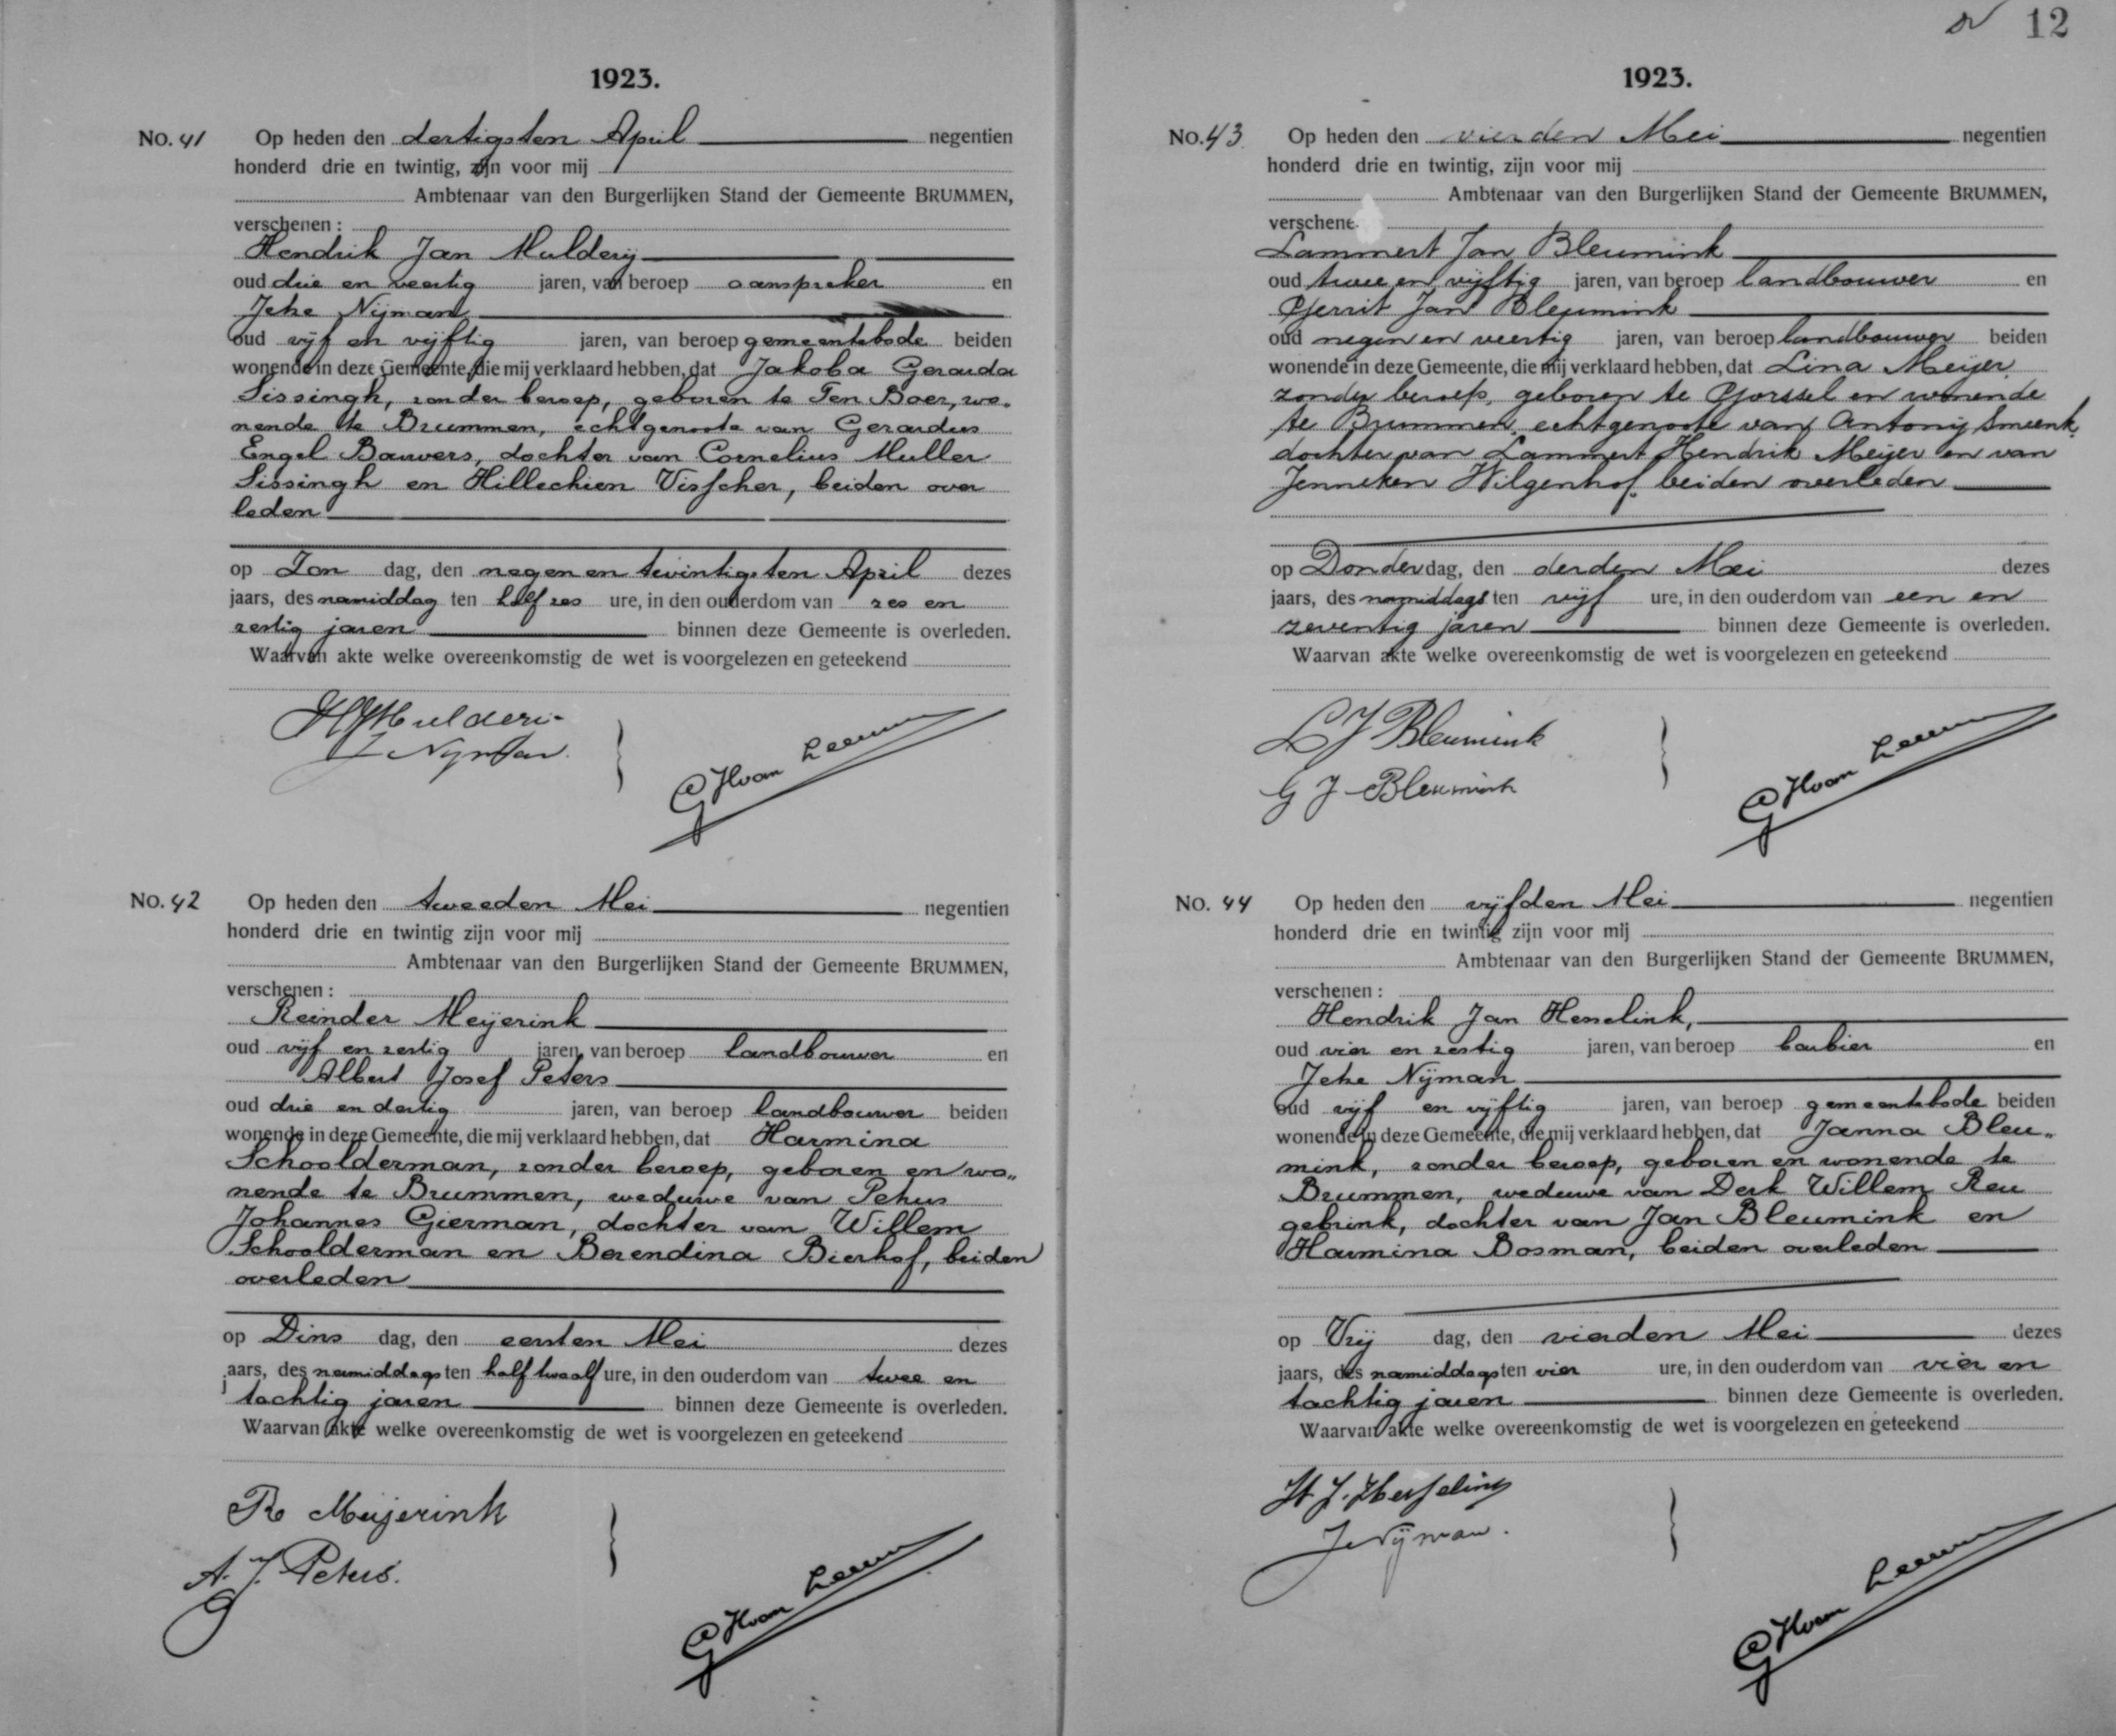 1923.
No. 41 Op heden den dertigsten April negentien
honderd drie en twintig, zijn voor mij
Ambtenaar van den Burgerlijken Stand der Gemeente BRUMMEN,
verschenen :
Hendrik Jan Mulderij
oud drie en veertig jaren, van beroep aanspreker en
Jehe Nijman
oud vijf en vijftig jaren, van beroep gemeentebode beiden
wonende in deze Gemeente, die mij verklaard hebben, dat Jakoba Gerarda
Sissingh, zonder beroep, geboren te Ten Boer, wo„
nende te Brummen, echtgenoote van Gerardus
Engel Bauvers, dochter van Cornelius Muller
Sissingh en Hillechien Visscher, beiden over
leden
op Zon dag, den negen en twintigsten April dezes
jaars, des namiddag ten half zes ure, in den ouderdom van zes en
zestig jaren binnen deze Gemeente is overleden.
Waarvan akte welke overeenkomstig de wet is voorgelezen en geteekend
HJMulderij
J Nyman.
GHvan Leeuwen
No. 42 Op heden den tweeden Mei negentien
honderd drie en twintig zijn voor mij
Ambtenaar van den Burgerlijken Stand der Gemeente BRUMMEN,
verschenen :
Reinder Meyerink
oud vijf en zestig jaren, van beroep landbouwer en
Albert Josef Peters
oud drie en dertig jaren, van beroep landbouwer beiden
wonende in deze Gemeente, die mij verklaard hebben, dat Harmina
Schoolderman, zonder beroep, geboren en wo„
nende te Brummen, weduwe van Petrus
Johannes Gierman, dochter van Willem
Schoolderman en Berendina Bierhof, beiden
overleden
op Dins dag, den eersten Mei dezes
jaars, des namiddags ten half twaalf ure, in den ouderdom van twee en
tachtig jaren binnen deze Gemeente is overleden.
Waarvan akte welke overeenkomstig de wet is voorgelezen en geteekend
R. Meijerink
A. J. Peters.
GHvan Leeuwen
12
1923.
No. 43 Op heden den vierden Mei negentien
honderd drie en twintig, zijn voor mij
Ambtenaar van den Burgerlijken Stand der Gemeente BRUMMEN,
verschene
Lammert Jan Bleumink
oud twee en vijftig jaren, van beroep landbouwer en
Gerrit Jan Bleumink
oud negen en veertig jaren, van beroep landbouwer beiden
wonende in deze Gemeente, die mij verklaard hebben, dat Lina Meijer
zonder beroep, geboren te Gorssel en wonende
te Brummen, echtgenoote van Antonij Smeenk,
dochter van Lammert Hendrik Meijer en van
Jenneken Wilgenhof, beiden overleden
op Donderdag, den derden Mei dezes
jaars, des namiddags ten vijf ure, in den ouderdom van een en
zeventig jaren binnen deze Gemeente is overleden.
Waarvan akte welke overeenkomstig de wet is voorgelezen en geteekend
L J Bleumink
G J Bleumink
GHvan Leeuwen
No. 44 Op heden den vijfden Mei negentien
honderd drie en twintig zijn voor mij
Ambtenaar van den Burgerlijken Stand der Gemeente BRUMMEN,
verschenen :
Hendrik Jan Hesselink,
oud vier en zestig jaren, van beroep barbier en
Jehe Nijman
oud vijf en vijftig jaren, van beroep gemeentebode beiden
wonende in deze Gemeente, die mij verklaard hebben, dat Janna Bleu„
mink, zonder beroep, geboren en wonende te
Brummen, weduwe van Derk Willem Reu
gebrink, dochter van Jan Bleumink en
Harmina Bosman, beiden overleden
op Vrij dag, den vierden Mei dezes
jaars, des namiddags ten vier ure, in den ouderdom van vier en
tachtig jaren binnen deze Gemeente is overleden.
Waarvan akte welke overeenkomstig de wet is voorgelezen en geteekend
H. J. Hesselink
J Nijman.
GHvan Leeuwen